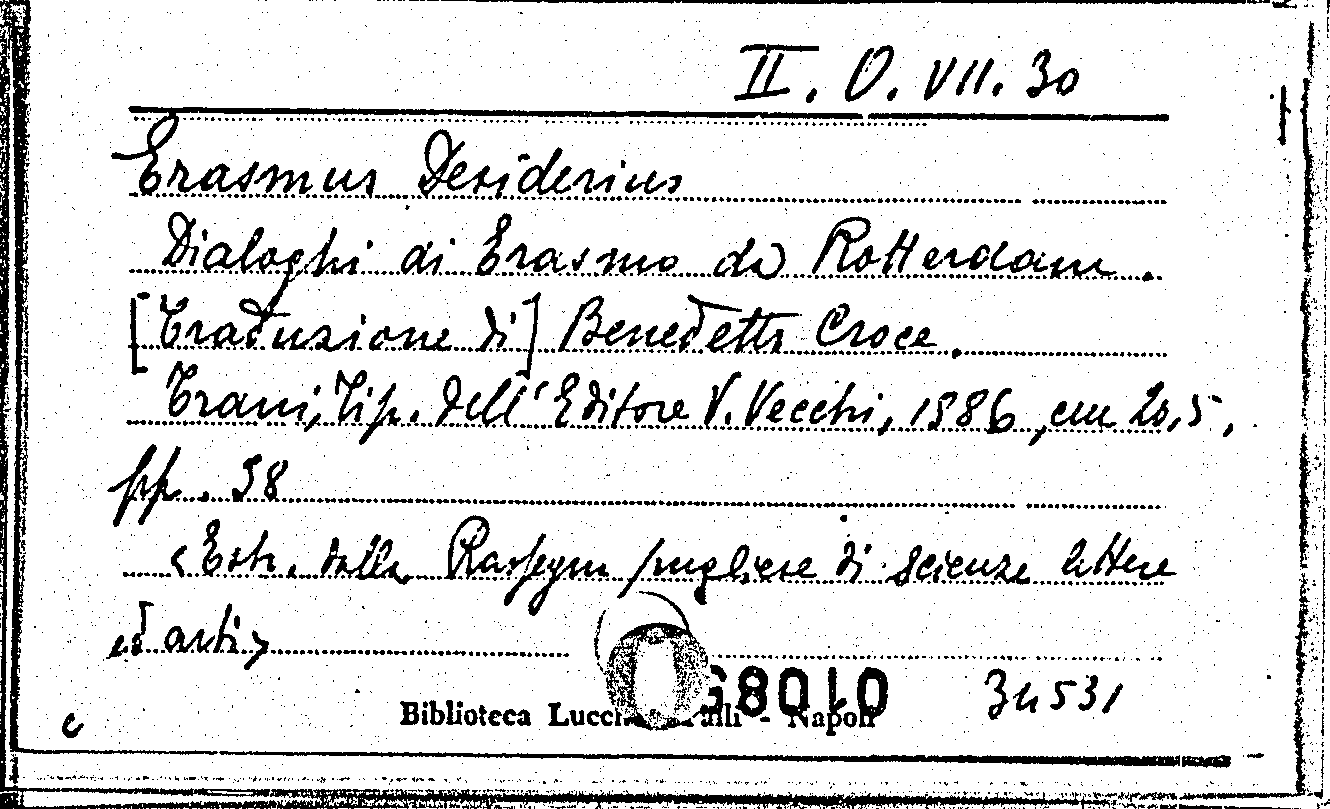 II. O. VII. 30
Erasmus Desiderius
Dialoghi di Erasmo da Rotterdam.
[Traduzione di] Benedetto Croce.
Trani, Tip. dell'Editore V. Vecchi, 1886, cm 20,5,
pp. 58
<Estr. dalla Rassegna pugliese di scienze lettere
ed arti>
68010
34531
Biblioteca - Napoli
c